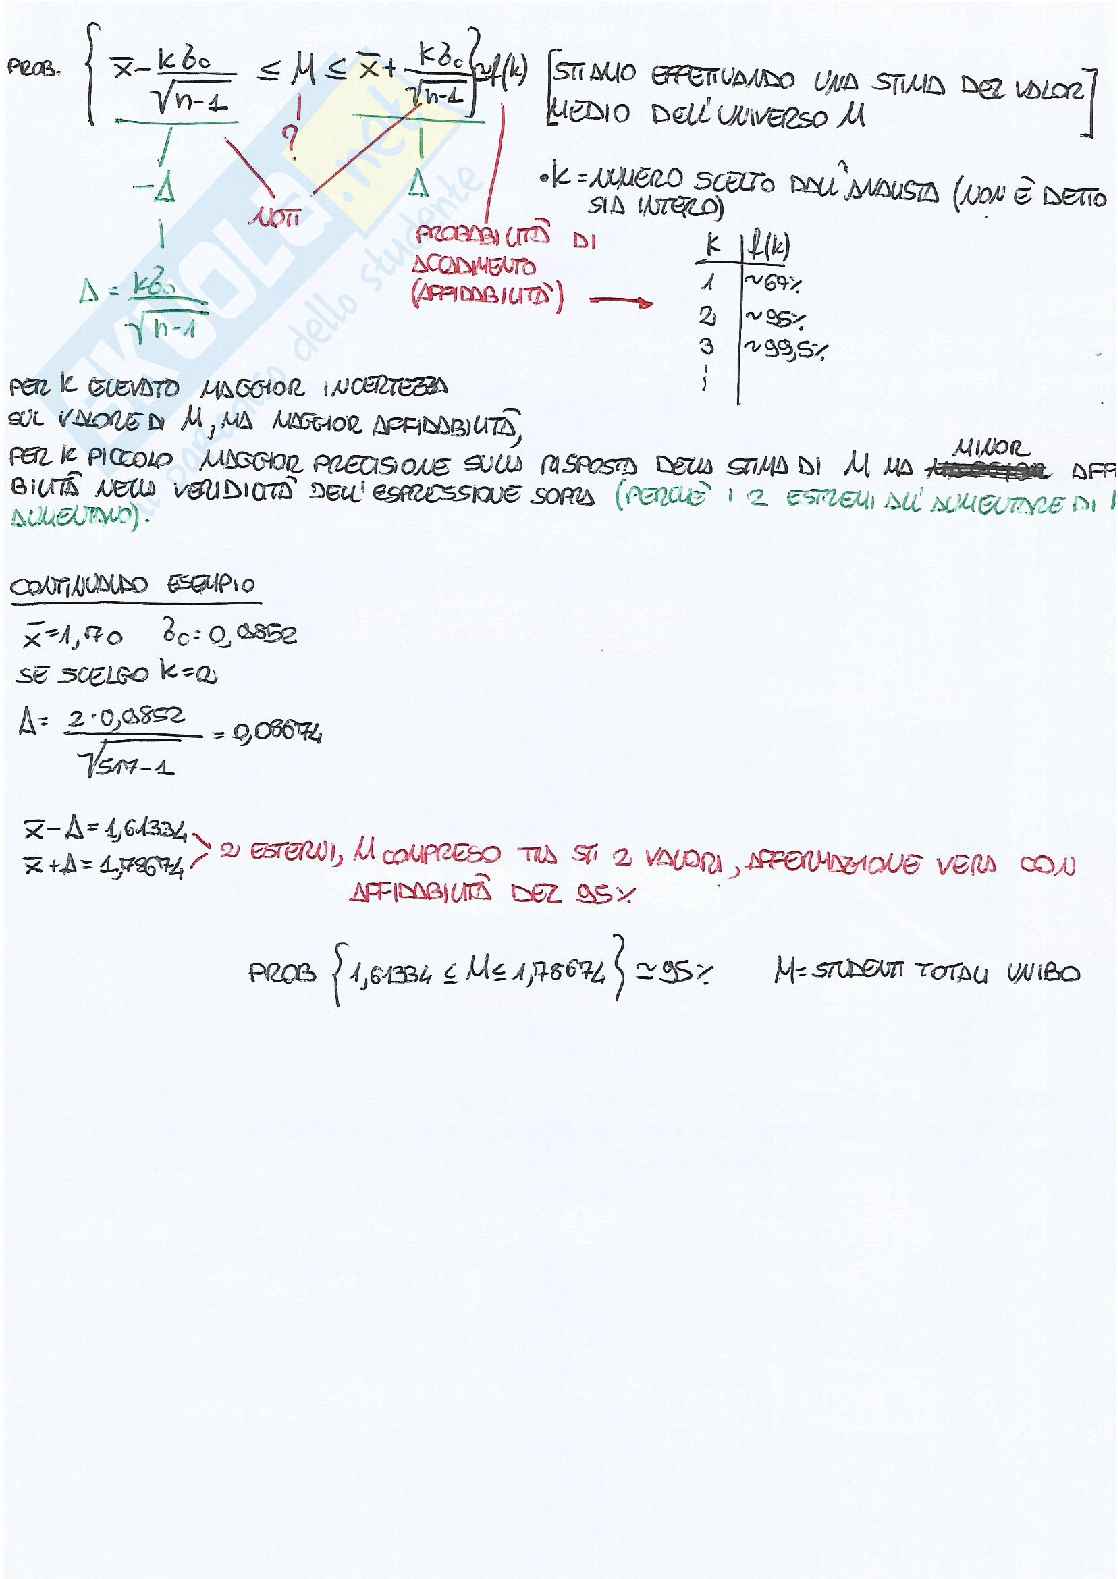 PROB. { x̄ - kδc/√(n-1) ≤ M ≤ x̄ + kδc/√(n-1) } ≃ f(k) [STIAMO EFFETTUANDO UNA STIMA DEL VALOR
MEDIO DELL'UNIVERSO M]
-Δ ? Δ
NOTI
• k = NUMERO SCELTO DALL'ANALISTA (NON È DETTO
SIA INTERO)
PROBABILITÀ DI
ACCADIMENTO
(AFFIDABILITÀ) →
k f(k)
1 ~67%
2 ~95%
3 ~99,5%
Δ = kδc/√(n-1)
PER K ELEVATO MAGGIOR INCERTEZZA
SUL VALORE DI M, MA MAGGIOR AFFIDABILITÀ,
PER K PICCOLO MAGGIOR PRECISIONE SULLA RISPOSTA DELLA STIMA DI M MA MINOR AFFI
BILITÀ NELLA VERIDICITÀ DELL'ESPRESSIONE SOPRA (PERCHÈ I 2 ESTREMI ALL'AUMENTARE DI
AUMENTANO).
CONTINUANDO ESEMPIO
x̄=1,70 δc=0,9852
SE SCELGO K=2
Δ = 2·0,9852/√(517-1) = 0,08674
x̄-Δ=1,61334
x̄+Δ=1,78674
2 ESTERMI, M COMPRESO TRA STI 2 VALORI, AFFERMAZIONE VERA CON
AFFIDABILITÀ DEL 95%
PROB {1,61334 ≤ M ≤ 1,78674} ≃ 95% M=STUDENTI TOTALI UNIBO
SKUOLA.net
dello studente